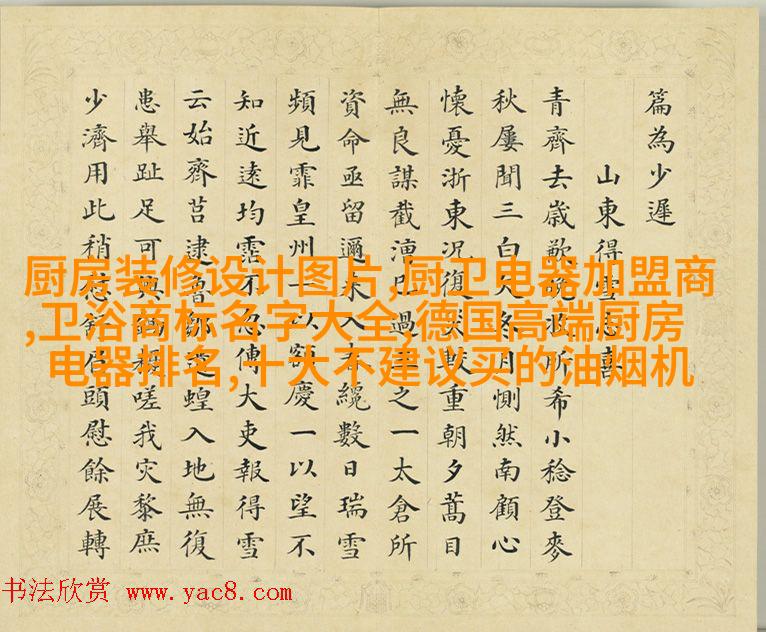 篇為少遲
山東得雪志喜
青齊去歲歉晚收所希小稔登麥
秋屢聞三白入冬月惻然南顧心
懷憂浙東況復災較重朝夕蒿目
無良謀截漕已過之一太倉所
資命亟留邇來入奏纔數日瑞雪
頻見霏皇州一以額慶一以望不
知近遠均霑不忽傳大吏報得雪
云始齊莒逮魯鄒蝗入地無復
患舉趾足可興鋤耰嗟我灾黎庶
少濟用此稍眉頭慰餘展轉
厨房装修设计图片,厨卫电器加盟商
,卫浴商标名字大全,德国高端厨房
电器排名,十大不建议买的油烟机
书法欣赏 www.yac8.com